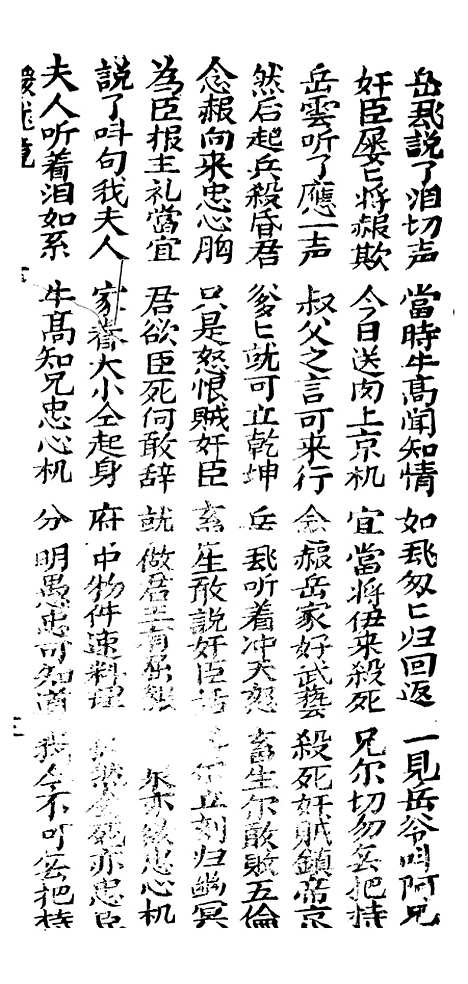 岳飛說了泪切声 當時牛高闻知情 如飛匆匕归回返 一見岳爷叫阿兄
奸臣屡匕将赧欺 今日送肉上京机 宜當将伊来殺死 兄尔切勿去把持
岳雲听了應一声 叔父之言可来行 念赧岳家好武藝 殺死奸贼鎮帝京
然后起兵殺昏君 爹匕就可立乾坤 岳飛听着冲天怒 畜生尔敢敗五倫
念赧向来忠心胸 只是怒恨贼奸臣 畜生敢說奸臣話 尔立刻归幽冥
為臣报主礼當宜 君欲臣死何敢辞 就做君王有屈 亦 忠心机
說了叫句我夫人 家眷大小仝起身 府中物件速料理 死亦忠臣
夫人听着泪如系 牛高知兄忠心机 分明愚忠可知 我今不可去把持